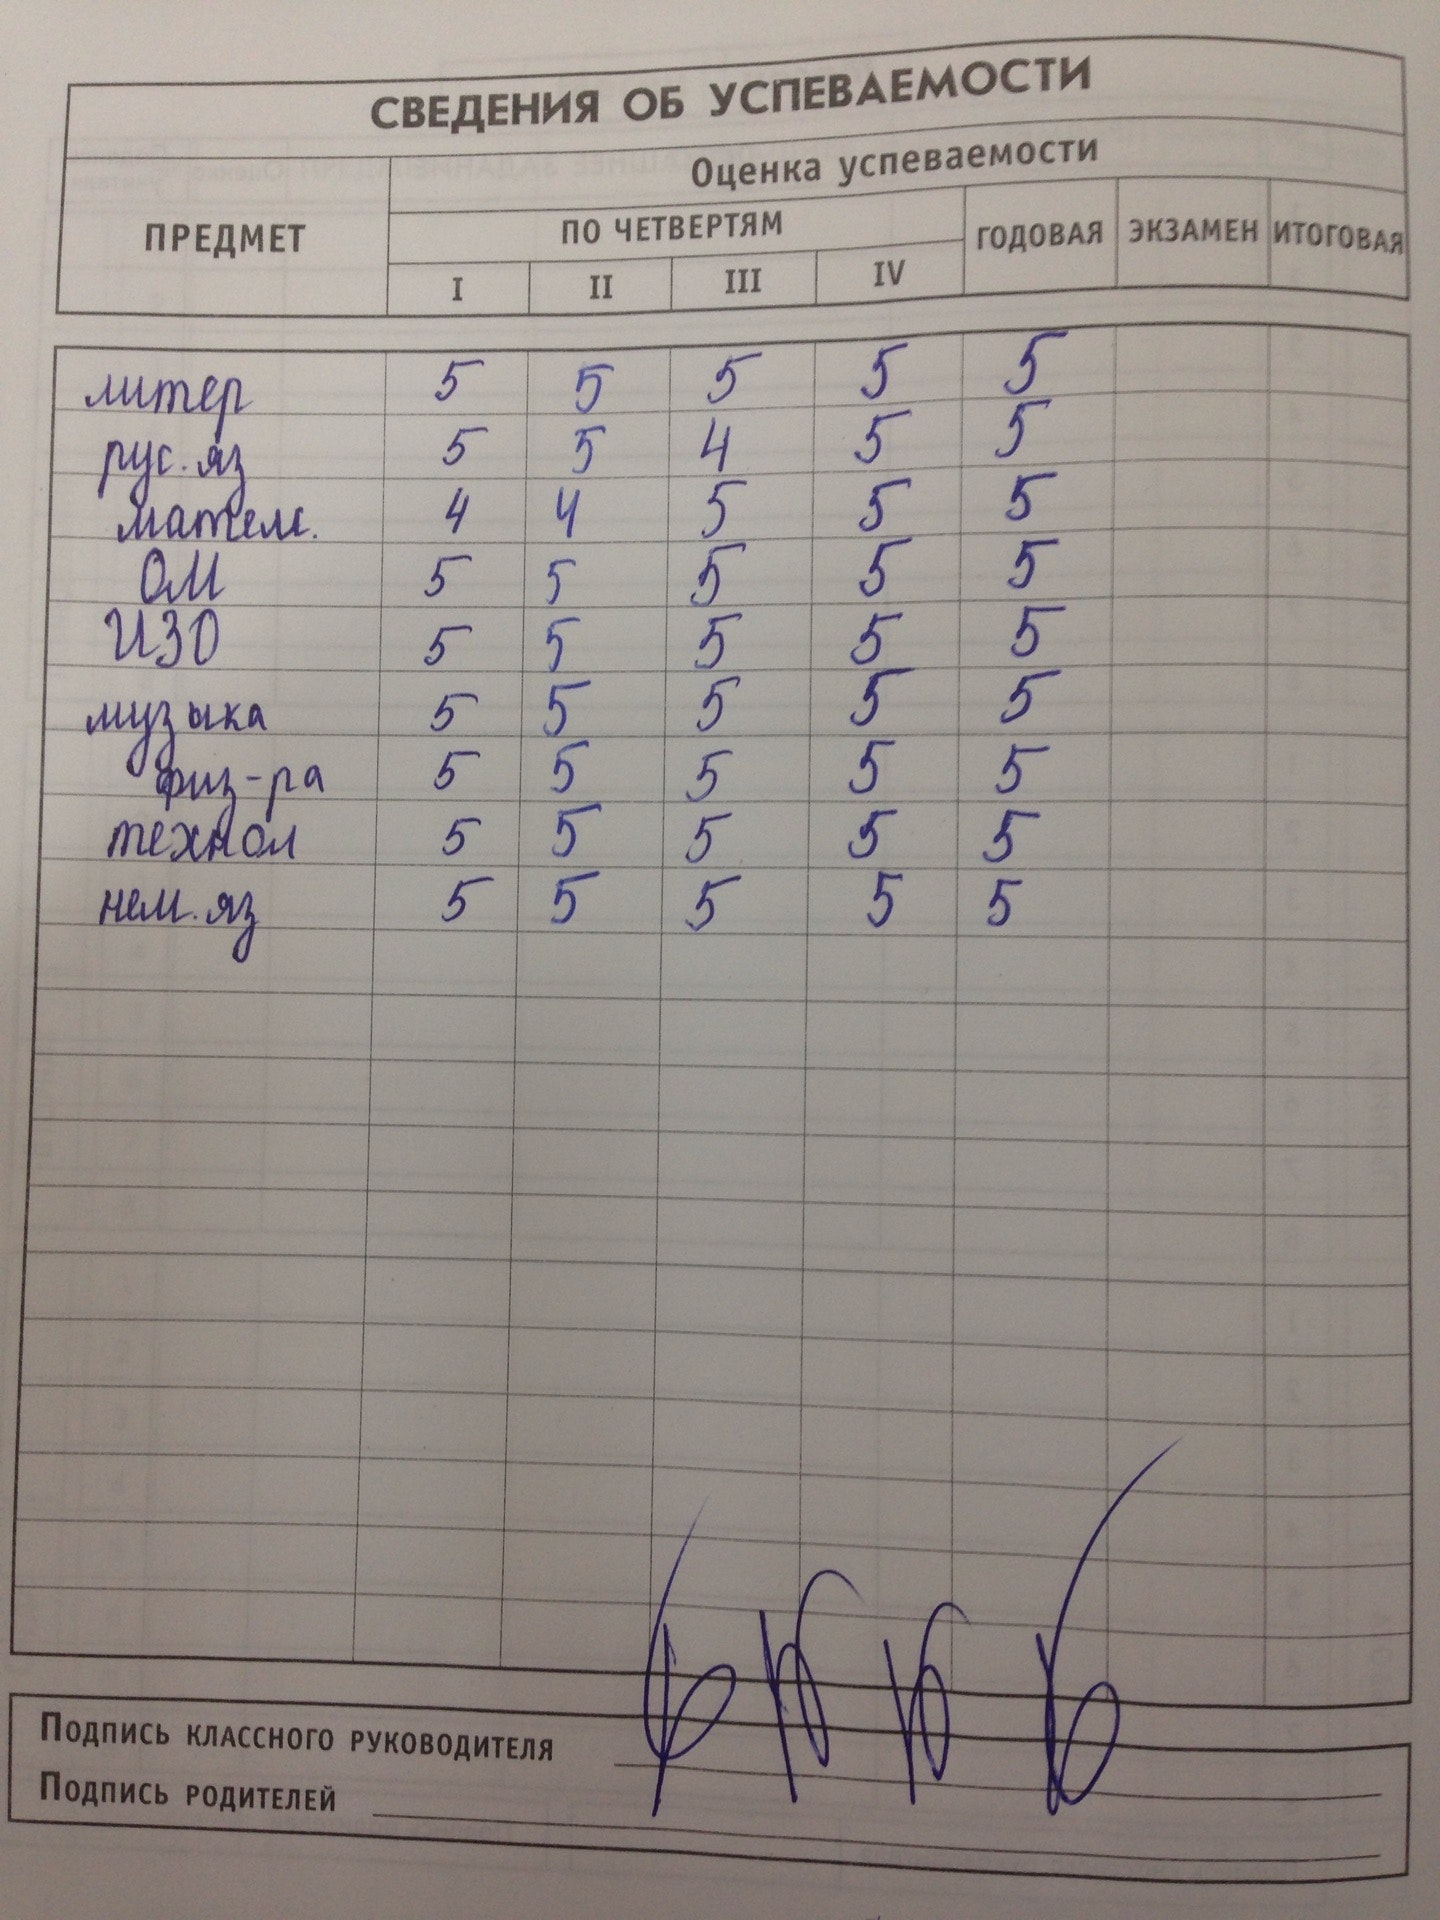 СВЕДЕНИЯ ОБ УСПЕВАЕМОСТИ
Оценка успеваемости
ПРЕДМЕТ ПО ЧЕТВЕРТЯМ ГОДОВАЯ ЭКЗАМЕН ИТОГОВАЯ
I II III IV
литер 5 5 5 5 5
рус.яз 5 5 4 5 5
матем. 4 4 5 5 5
ОМ 5 5 5 5 5
ИЗО 5 5 5 5 5
музыка 5 5 5 5 5
физ-ра 5 5 5 5 5
технол 5 5 5 5 5
нем.яз 5 5 5 5 5
Подпись классного руководителя
Подпись родителей